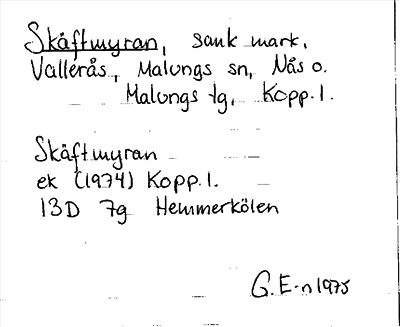 Skåftmyran, sank mark,
Vallerås, Malungs sn, Nås o.
Malungs tg, Kopp. l.
Skåftmyran
ek (1974) Kopp. l.
13D 7g Hemmerkölen
G. E-n 1975